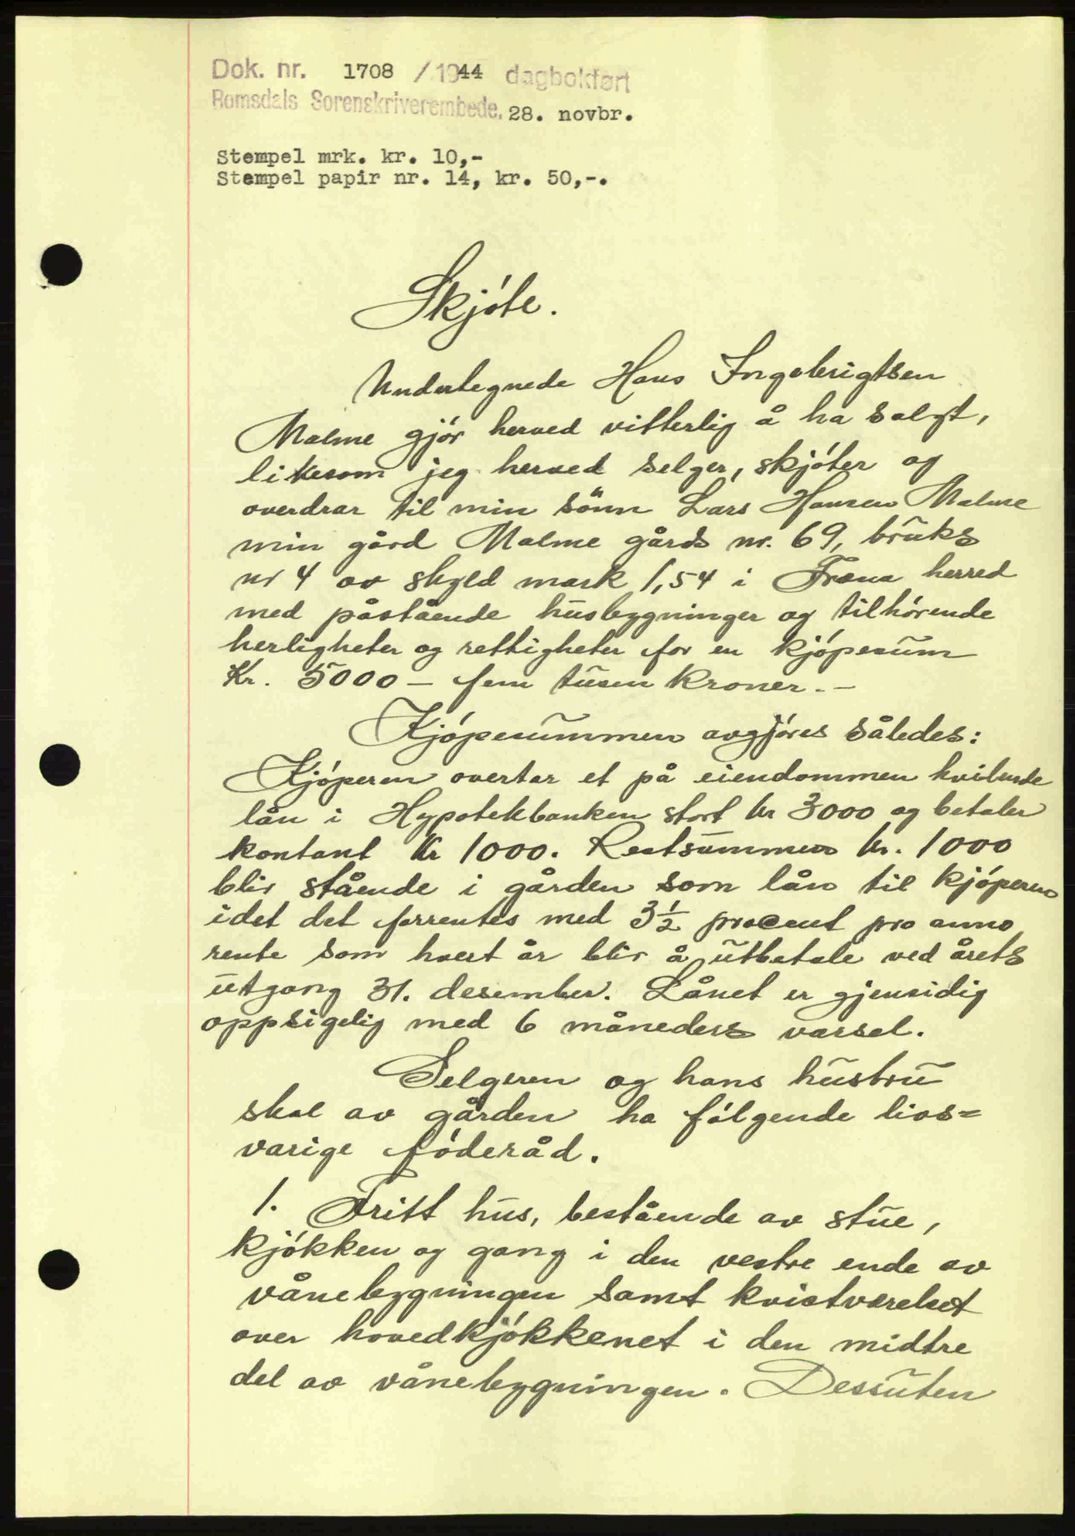 Dok. nr. 1708 / 1944 dagbokført
Romsdals Sorenskriverembede, 28. novbr.
Stempel mrk. kr. 10,-
Stempel papir nr. 14, kr. 50,-.
Skjóte.
Undertegnede Hans Ingebrigtsen
Malme gjór herved vitterlig å ha solgt,
likesom jeg herved selger, skjóter og
overdrar til min sönn Lars Hansen Malme
min gård Malme gårds nr. 69, bruks
nr 4 av skyld mark 1,54 i Fræna herred
med påstående husbygninger og tilhórende
herligheter og rettigheter for en kjópesum
Kr. 5000 — fem tusen kroner. —
Kjópesummen avgjóres således:
Kjóperen overtar et på eiendommen hvilende
lån i Hypotekbanken stort kr 3000 og betaler
kontant kr 1000. Restsummen kr. 1000
blir stående i gården som lån til kjóperen
idet det forrentes med 3½ procent pro anno
rente som hvert år blir å utbetale ved årets
utgang 31. desember. Lånet er gjensidig
oppsigelig med 6 måneders varsel.
Selgeren og hans hustru
skal av gården ha fólgende livs=
varige fóderåd.
1. Fritt hus, bestående av stue,
kjókken og gang i den vestre ende av
vånebygningen samt kvistværelset
over hovedkjókkenet i den midtre
del av vånebygningen. Dessuten